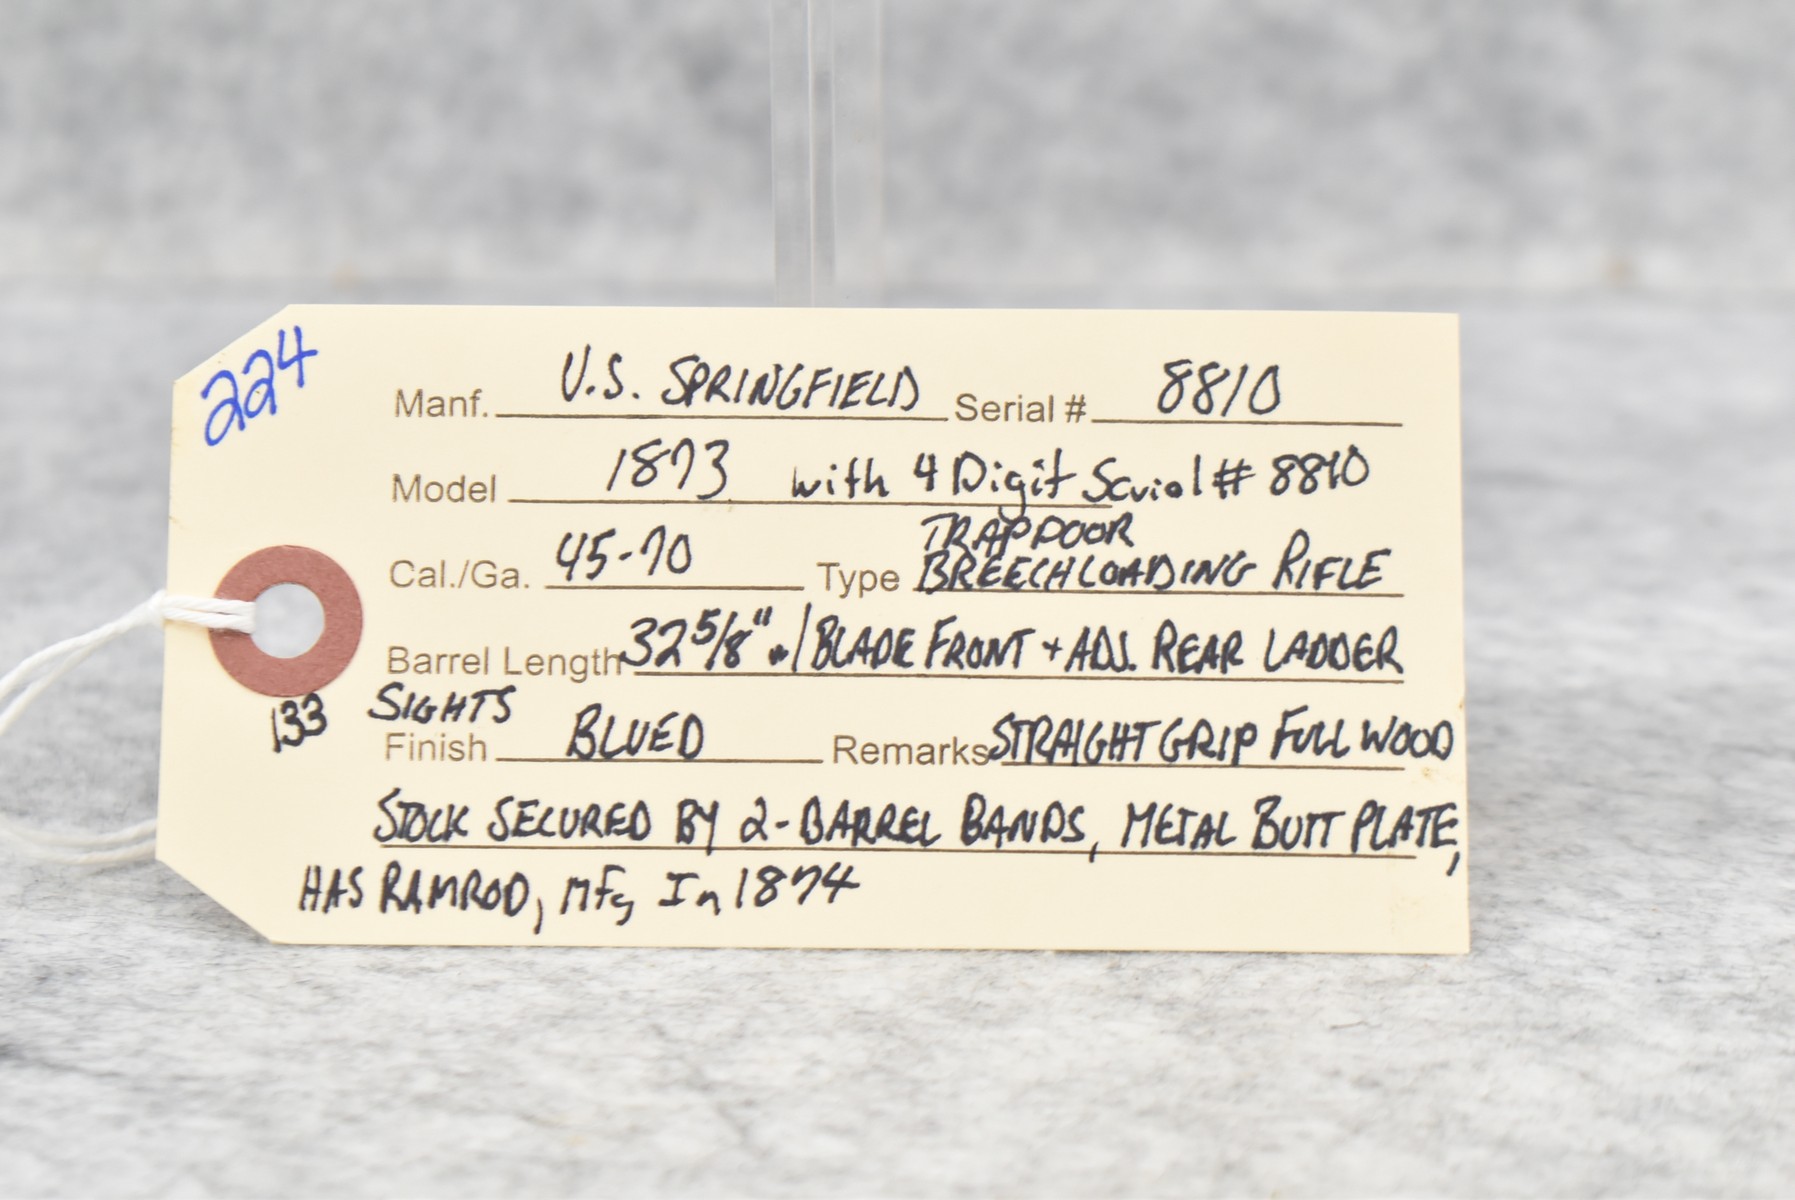 224
Manf. U.S. SPRINGFIELD Serial # 8810
Model 1873 with 4 Digit Serial # 8810
Cal./Ga. 45-70 Type TRAPDOOR
BREECHLOADING RIFLE
Barrel Length 32 5/8" w/ BLADE FRONT + ADJ. REAR LADDER
SIGHTS
133
Finish BLUED Remarks STRAIGHT GRIP FULL WOOD
STOCK SECURED BY 2-BARREL BANDS, METAL BUTT PLATE,
HAS RAMROD, MFG In 1874